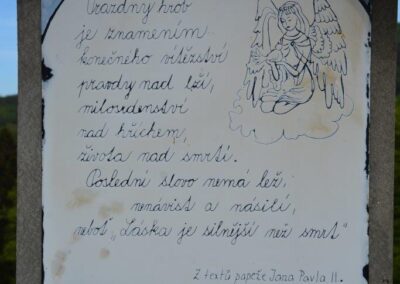 Prázdný hrob
je znamením
konečného vítězství
pravdy nad lží,
milosrdenství
nad hříchem,
života nad smrtí.
Poslední slovo nemá lež,
nenávist a násilí,
neboť „Láska je silnější než smrt“
Z textů papeže Jana Pavla II.